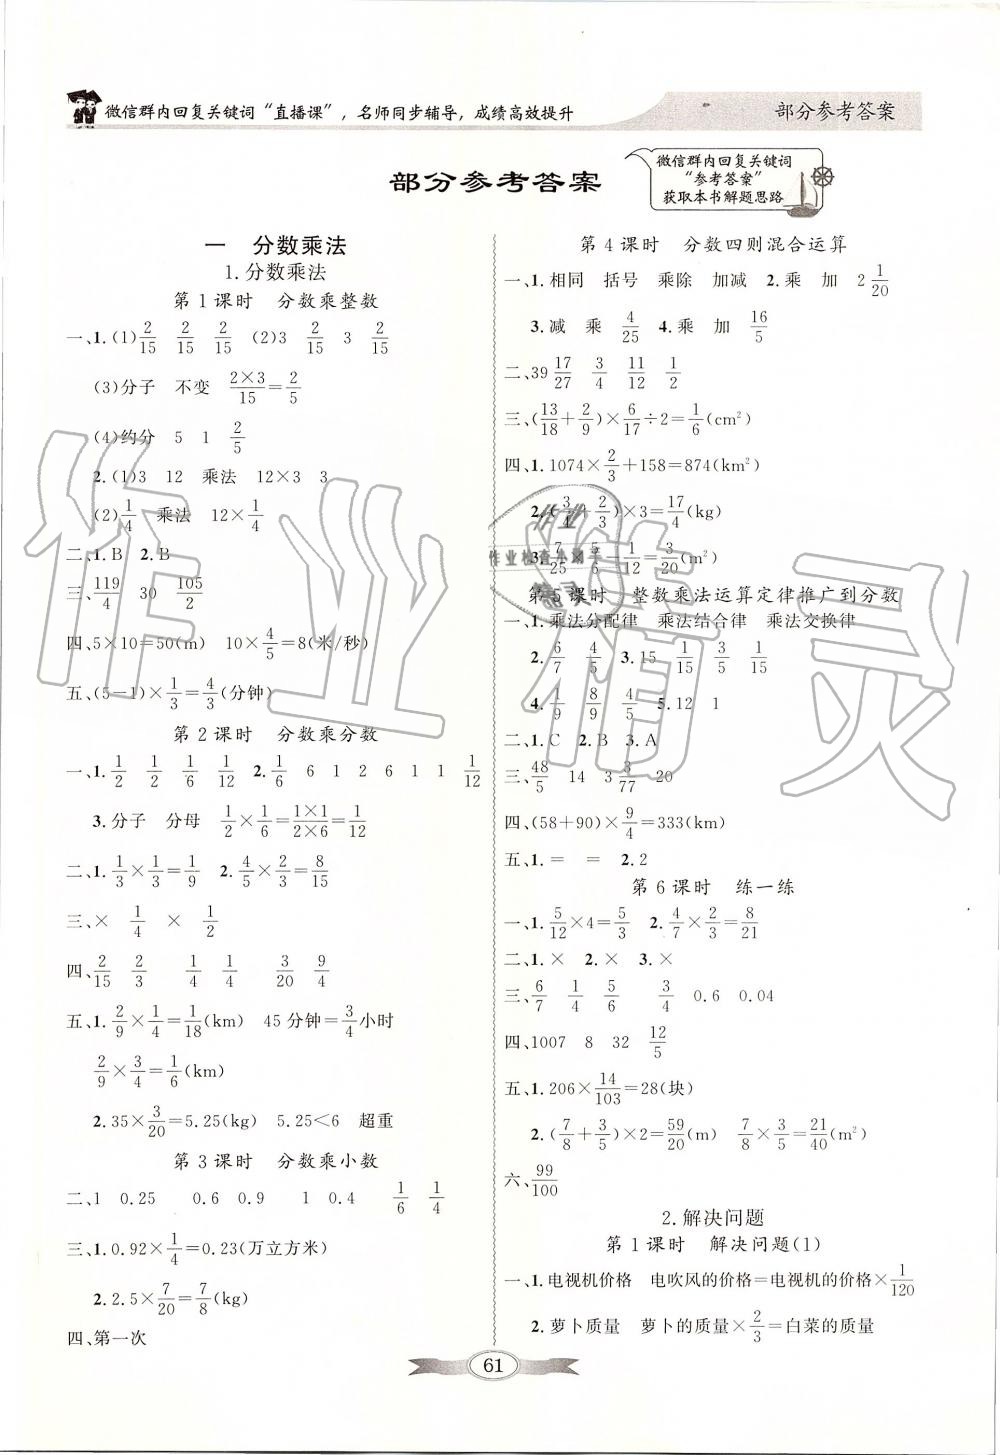 微信群内回复关键词“直播课”，名师同步辅导，成绩高效提升
部分参考答案
部分参考答案
微信群内回复关键词
“参考答案”
获取本书解题思路
一 分数乘法
1.分数乘法
第1课时 分数乘整数
一、1.(1)2/15 2/15 2/15 (2)3 2/15 3 2/15
(3)分子 不变 2×3/15=2/5
(4)约分 5 1 2/5
2.(1)3 12 乘法 12×3 3
(2)1/4 乘法 12×1/4
二、1.B 2.B
三、119/4 30 105/2
四、5×10=50(m) 10×4/5=8(米/秒)
五、(5-1)×1/3=4/3(分钟)
第2课时 分数乘分数
一、1.1/2 1/6 1/6 1/12 2.1/6 6 1 2 6 1 1 1/12
3.分子 分母 1/2×1/6=1×1/2×6=1/12
二、1.1/3×1/3=1/9 2.4/5×2/3=8/15
三、× 1/4 × 1/2
四、2/15 2/3 1/4 1/4 3/20 9/4
五、1.2/9×1/4=1/18(km) 45分钟=3/4小时
2/9×3/4=1/6(km)
2.35×3/20=5.25(kg) 5.25<6 超重
第3课时 分数乘小数
二、1 0.25 0.6 0.9 1 0.4 1/6 1/4
三、1.0.92×1/4=0.23(万立方米)
2.2.5×7/20=7/8(kg)
四、第一次
第4课时 分数四则混合运算
一、1.相同 括号 乘除 加减 2.乘 加 2 1/20
3.减 乘 4/25 4.乘 加 16/5
二、39 17/27 3/4 11/12 1/2
三、(13/18+2/9)×6/17÷2=1/6(cm²)
四、1.1074×2/3+158=874(km²)
2.(3/4+2/3)×3=17/4(kg)
3.7/25×5/6-1/12=3/20(m²)
第5课时 整数乘法运算定律推广到分数
一、1.乘法分配律 乘法结合律 乘法交换律
2.6/7 4/5 3.15 1/15 3/5 1/15
4.1/9 8/9 4/5 5.12 1
二、1.C 2.B 3.A
三、48/5 14 3 3/77 20
四、(58+90)×9/4=333(km)
五、1.= = 2.2
第6课时 练一练
一、1.5/12×4=5/3 2.4/7×2/3=8/21
二、1.× 2.× 3.×
三、6/7 1/4 5/6 3/4 0.6 0.04
四、1007 8 32 12/5
五、1.206×14/103=28(块)
2.(7/8+3/5)×2=59/20(m) 7/8×3/5=21/40(m²)
六、99/100
2.解决问题
第1课时 解决问题(1)
一、1.电视机价格 电吹风的价格=电视机的价格×1/120
2.萝卜质量 萝卜的质量×2/3=白菜的质量
61
作业精灵